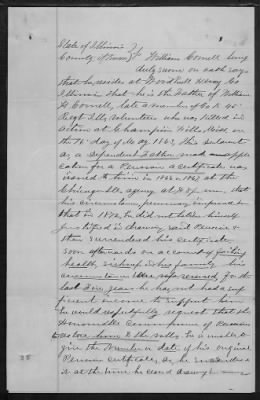 State of Illinois
County of Henry William Cornell being
duly sworn on oath says
that he resides at Woodhull Henry Co
Illinois that he is the Father of William
H Cornell, late a member of Co K 45th
Regt Ills Volunteers who was killed in
action at Champion Hills Miss on
the 16th day of May 1863, This
as a Dependent Father made
cation for a Pension a certificate was
issued to him in 1866 or 1867 at the
Chicago Ills agency at $8 per mo, that
his circumstances
that in 1872, he did not believe himself
justified in drawing said Pension &
then surrendered his Certificate
soon afterwards on account of failing
health, sickness in his family his
circumstances were for the
last five years he has not had suf
ficient income to support him
he would respectfully request that the
Honorable Commissioner of Pensions
restore him to the rolls, he is unable to
give the Number or date of his original
Pension certificate, as he
it at the time he ceased drawing